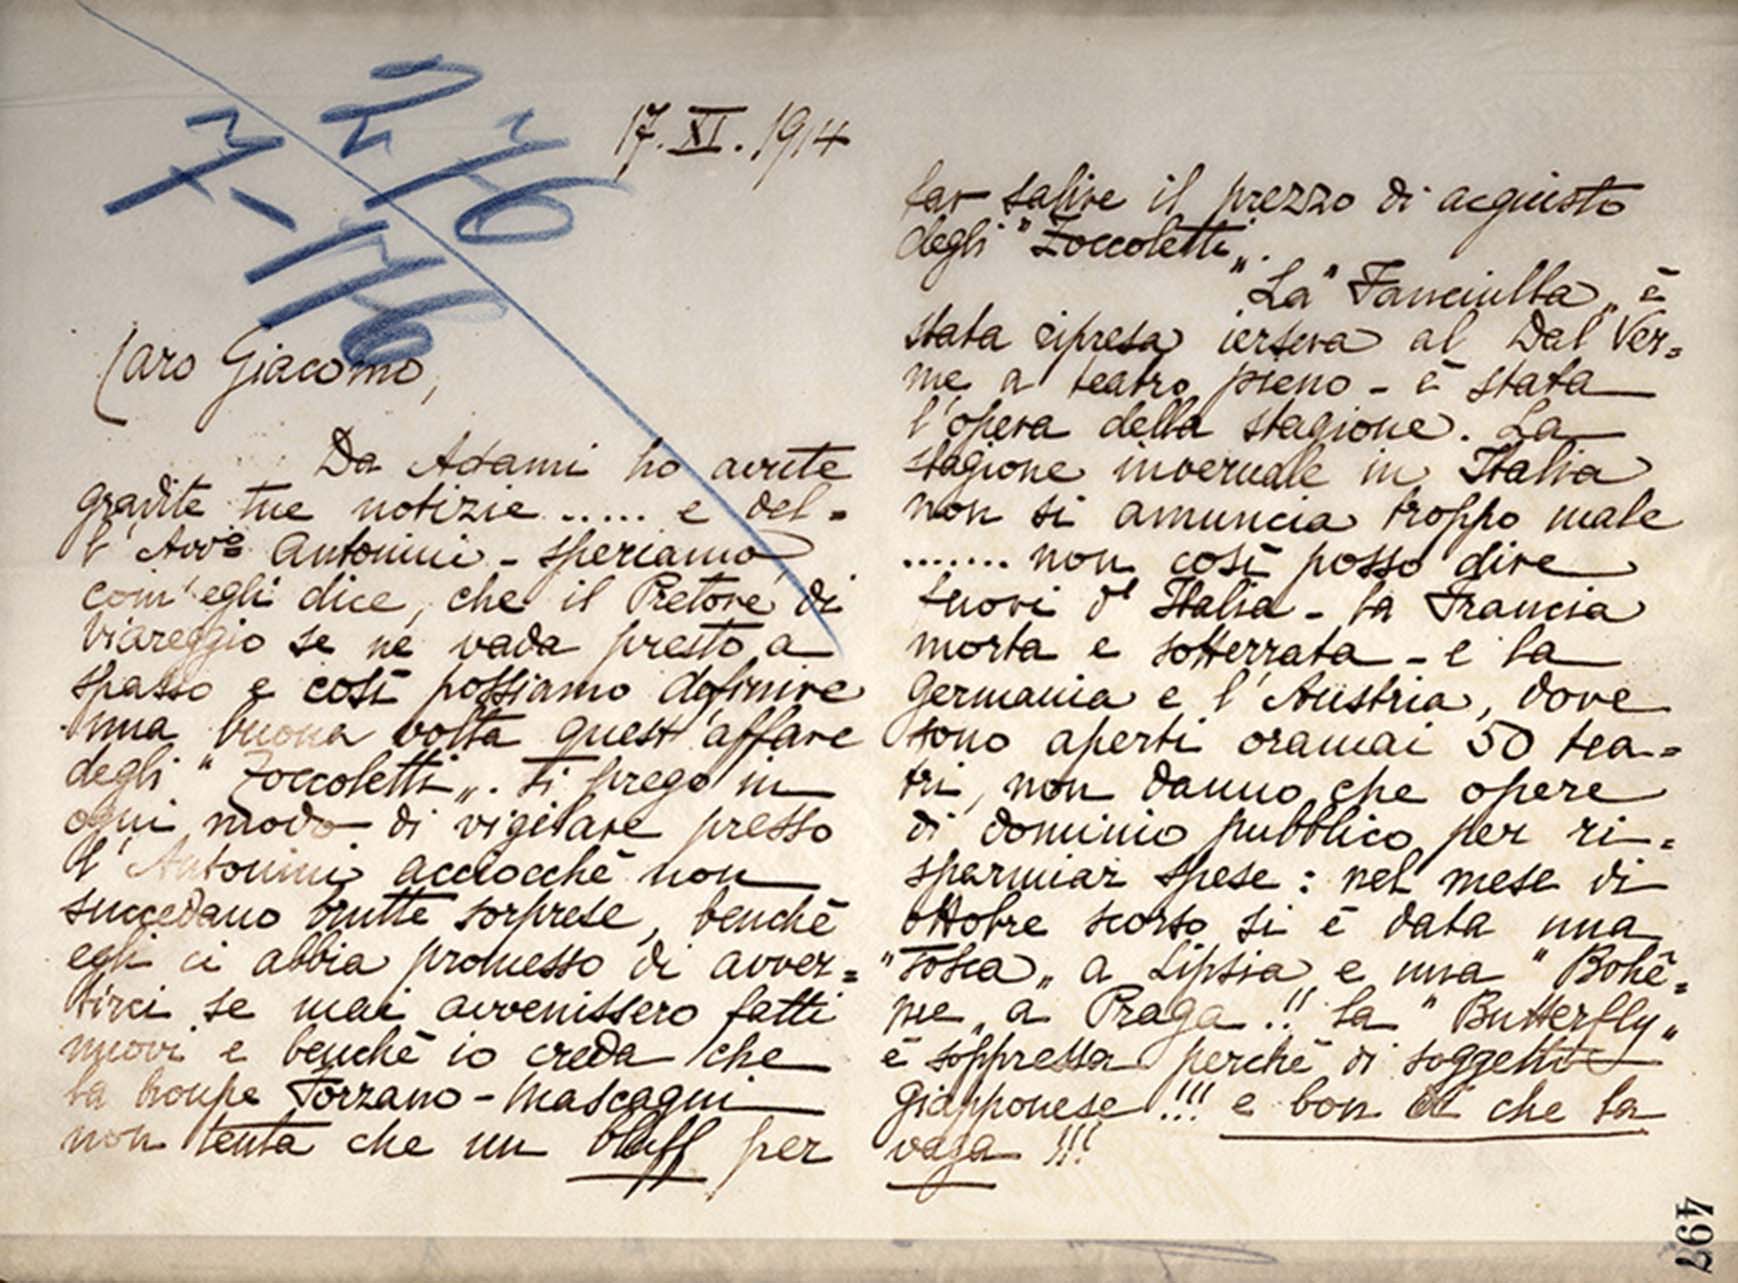 17. XI. 1914
Caro Giacomo,
Da Adami ho avute
gradite tue notizie ..... e del=
l'Avv.º Antonini - speriamo,
com'egli dice, che il Pretore di
Viareggio se ne vada presto a
spasso e così possiamo definire
una buona volta quest'affare
degli "Zoccoletti„. Ti prego in
ogni modo di vigilare presso
l'Antonini acciocchè non
succedano brutte sorprese, benchè
egli ci abbia promesso di avver=
tirci se mai avvenissero fatti
nuovi e benchè io creda che
la troupe Forzano - Mascagni
non tenta che un bluff per
far salire il prezzo di acquisto
degli "Zoccoletti„.
La "Fanciulla„ è
stata ripresa iersera al Dal Ver=
me a teatro pieno - è stata
l'opera della stagione. La
stagione invernale in Italia
non si annuncia troppo male
....... non così posso dire
fuori d'Italia - la Francia
morta e sotterrata - e la
Germania e l'Austria, dove
sono aperti oramai 50 tea=
tri, non danno che opere
di dominio pubblico per ri=
sparmiar spese: nel mese di
ottobre scorso si è data una
"Tosca„ a Lipsia e una "Bohè=
me„ a Praga!! la "Butterfly„
è soppressa perchè di soggetto
giapponese!!! e bon che la
vaga!!!
497